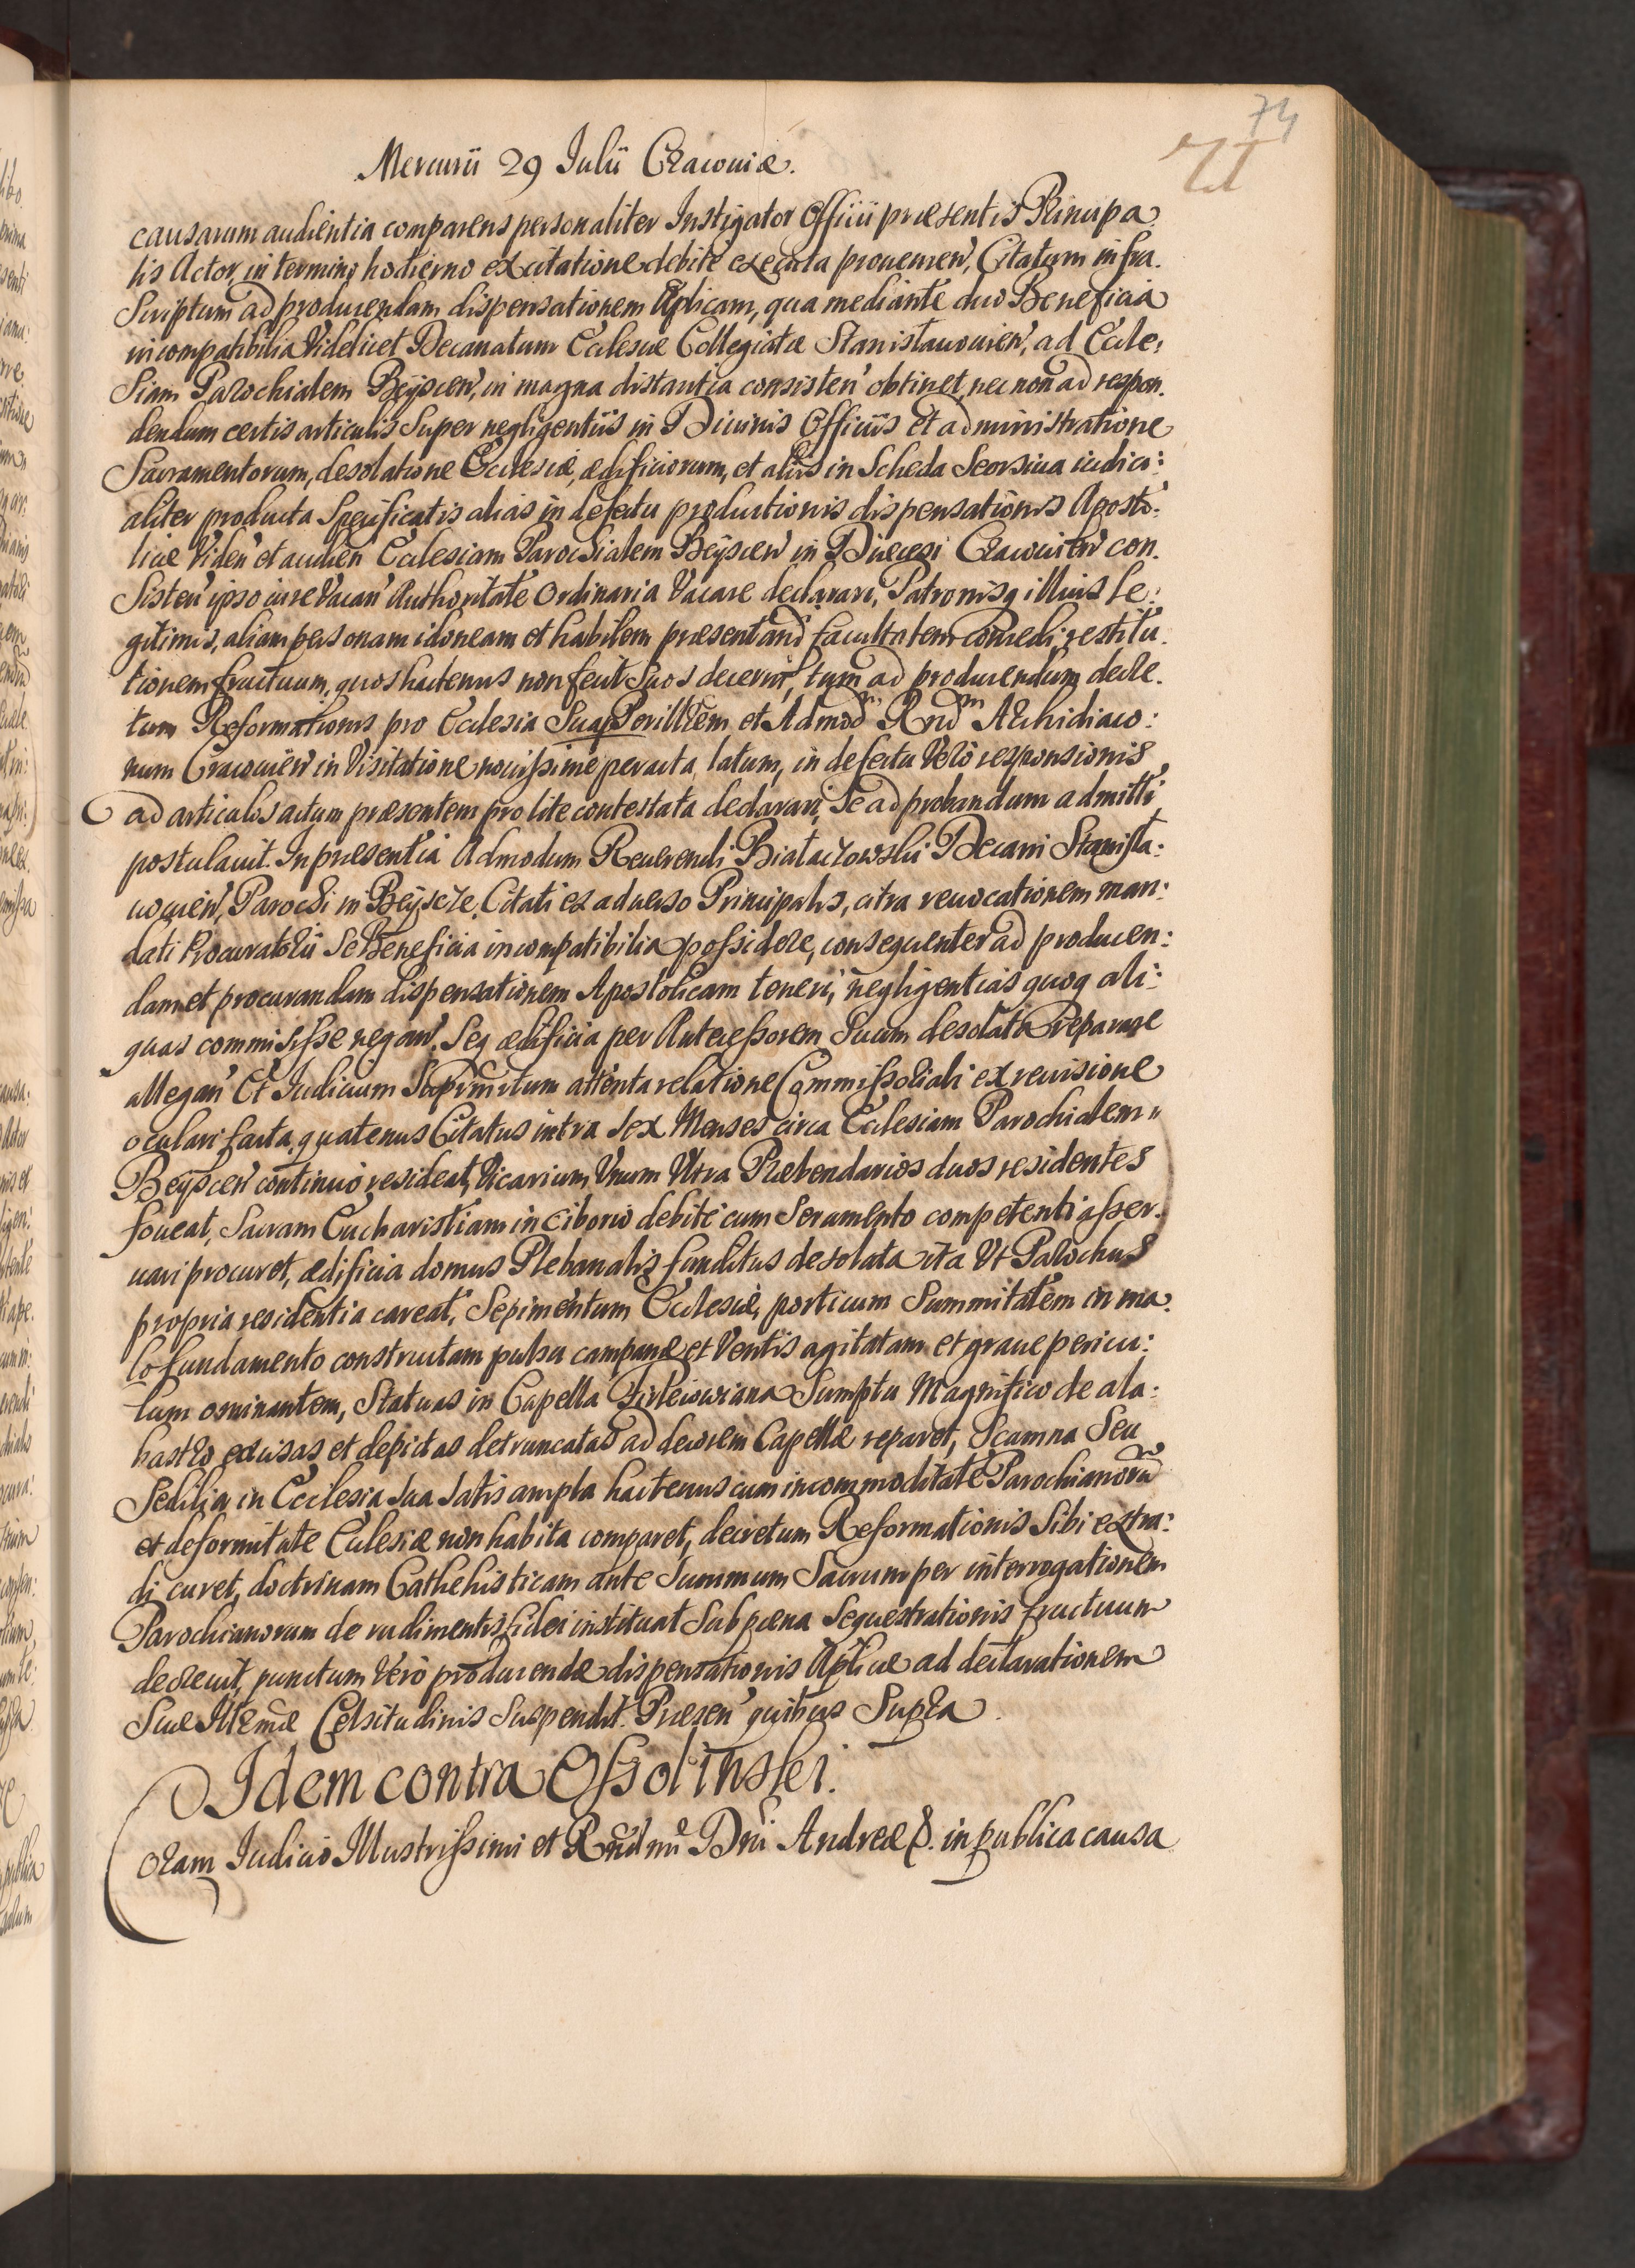 74
71
Mercurii 29 Julii Cracoviæ.
causarum audientia comparens personaliter Instigator Officii præsentis Principa:
lis Actor, in termino hodierno ex citatione debite executa proveniеń, Citatum infra.
Scriptum ad producendam dispensationem Aplicam, qua mediante duo Beneficia
incompatibilia Videlicet Decanatum Ecclesiæ Collegiatæ Stanislavovień, ad Eccle:
siam Parochialem Beyscień, in magna distantia consisteń obtinet, nec non ad respon.
dendum certis articulis Super negligentiis in Divinis Officiis et administratione
Sacramentorum, desolatione Ecclesiæ, ædificiorum, et aliis in Scheda Seorsiva iudici:
aliter producta Specificatis alias in defectu productionis dispensationis Aposto:
licæ Videń et audień Ecclesiam Parochialem Beyscień in Diæcesi Cracovień con.
Sisteń ipso iure Vacań Authoritate Ordinaria Vacare declarari, Patronisq illius le:
gitimis, aliam personam idoneam et habilem præsentandi facultatem concedi, restitu.
tionem fructuum, quos hactenus non fecit Suos decerni, tum ad producendum decre.
tum Reformationis pro Ecclesia Sua Perillrem et Admod̃m Rnd̃m Archidiaco:
num Cracovień in Visitatione novissime peracta, latum, in defectu Vero responsionis
ad articulos actum præsentem pro lite contestata declarari, Se ad probandum admitti
postulavit. In præsentia Admodum Reverendi Białaczowski Decani Stanisla:
uovień, Parochi in Beyscze, Citati ex adverso Principalis, citra revocationem man:
dati Procuratorii Se Beneficia incompatibilia possidere, consequenter ad producen:
dam et procurandam dispensationem Apostolicam teneri, negligentias quoq ali:
quas commisisse negań, Seq ædificia per Antecessorem Suum desolata reparare
allegań Et Iudicium Saprimitum attenta relatione Commissoriali ex revisione
oculari facta, quatenus Citatus intra Sex Menses circa Ecclesiam Parochialem
Beyscień continuo resideat, Vicarium Unum Ultra Præbendarios duos residentes
foveat, Sacram Eucharistiam in Ciborio debite cum Seramento competenti asser.
vari procuret, ædificia domus Plebanalis funditus desolata ita Ut Parochus
propria residentia careat, Sepimentum Ecclesiæ, porticum Summitatem in ma:
lo fundamento constructam pulsu campanæ et Ventis agitatam et grave pericu:
lum ominantem, Statuas in Capella Firleiowiana Sumptu Magnifico de ala:
bastro excisas et depictas detruncatas ad decorem Capellæ reparet, Scamna Seu
Sedilia in Ecclesia Sua Satis ampla hactenus cum incommoditate Parochianorũ
et deformitate Ecclesiæ non habita comparet, decretum Reformationis Sibi extra:
di curet, doctrinam Cathehisticam ante Summum Sacrum per interrogationem
Parochianorum de rudimentis fidei instituat Sub pæna Sequestrationis fructuum
decrevit, punctum Vero producendæ dispensationis Aplicæ ad declarationem
Suæ Illrmæ Celsitudinis Suspendit. Præseń quibus Supra.
Idem contra Ossolinski.
Coram Iudicio Illustrissimi et Rndmi Dni Andreæ &. in publica causa